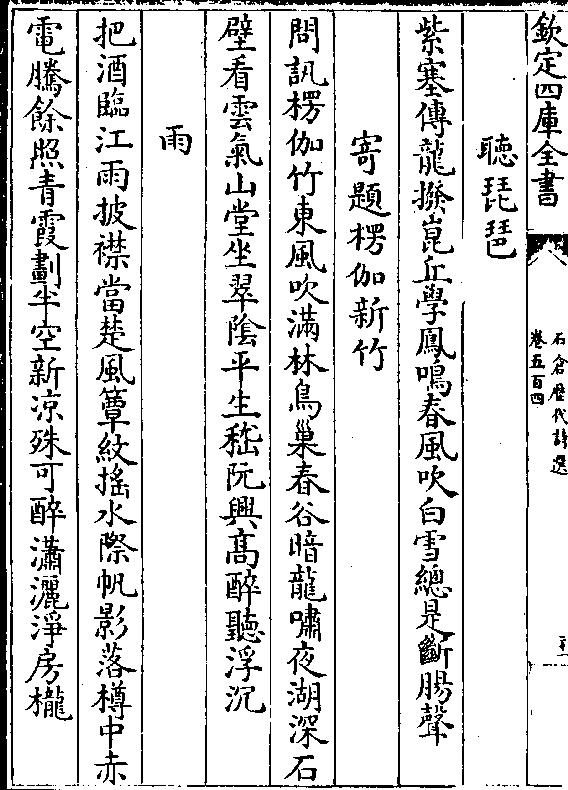 欽定四庫全書
石倉歷代詩選
卷五百四
聽琵琶
紫塞傳龍撥崑丘學鳳鳴春風吹白雪總是斷腸聲
寄題楞伽新竹
問訊楞伽竹東風吹滿林鳥巢春谷暗龍嘯夜湖深石
壁看雲氣山堂坐翠陰平生嵇阮興髙醉聽浮沉
雨
把酒臨江雨披襟當楚風簟紋搖水際帆影落樽中赤
電騰餘照青霞劃半空新涼殊可醉瀟灑淨房櫳